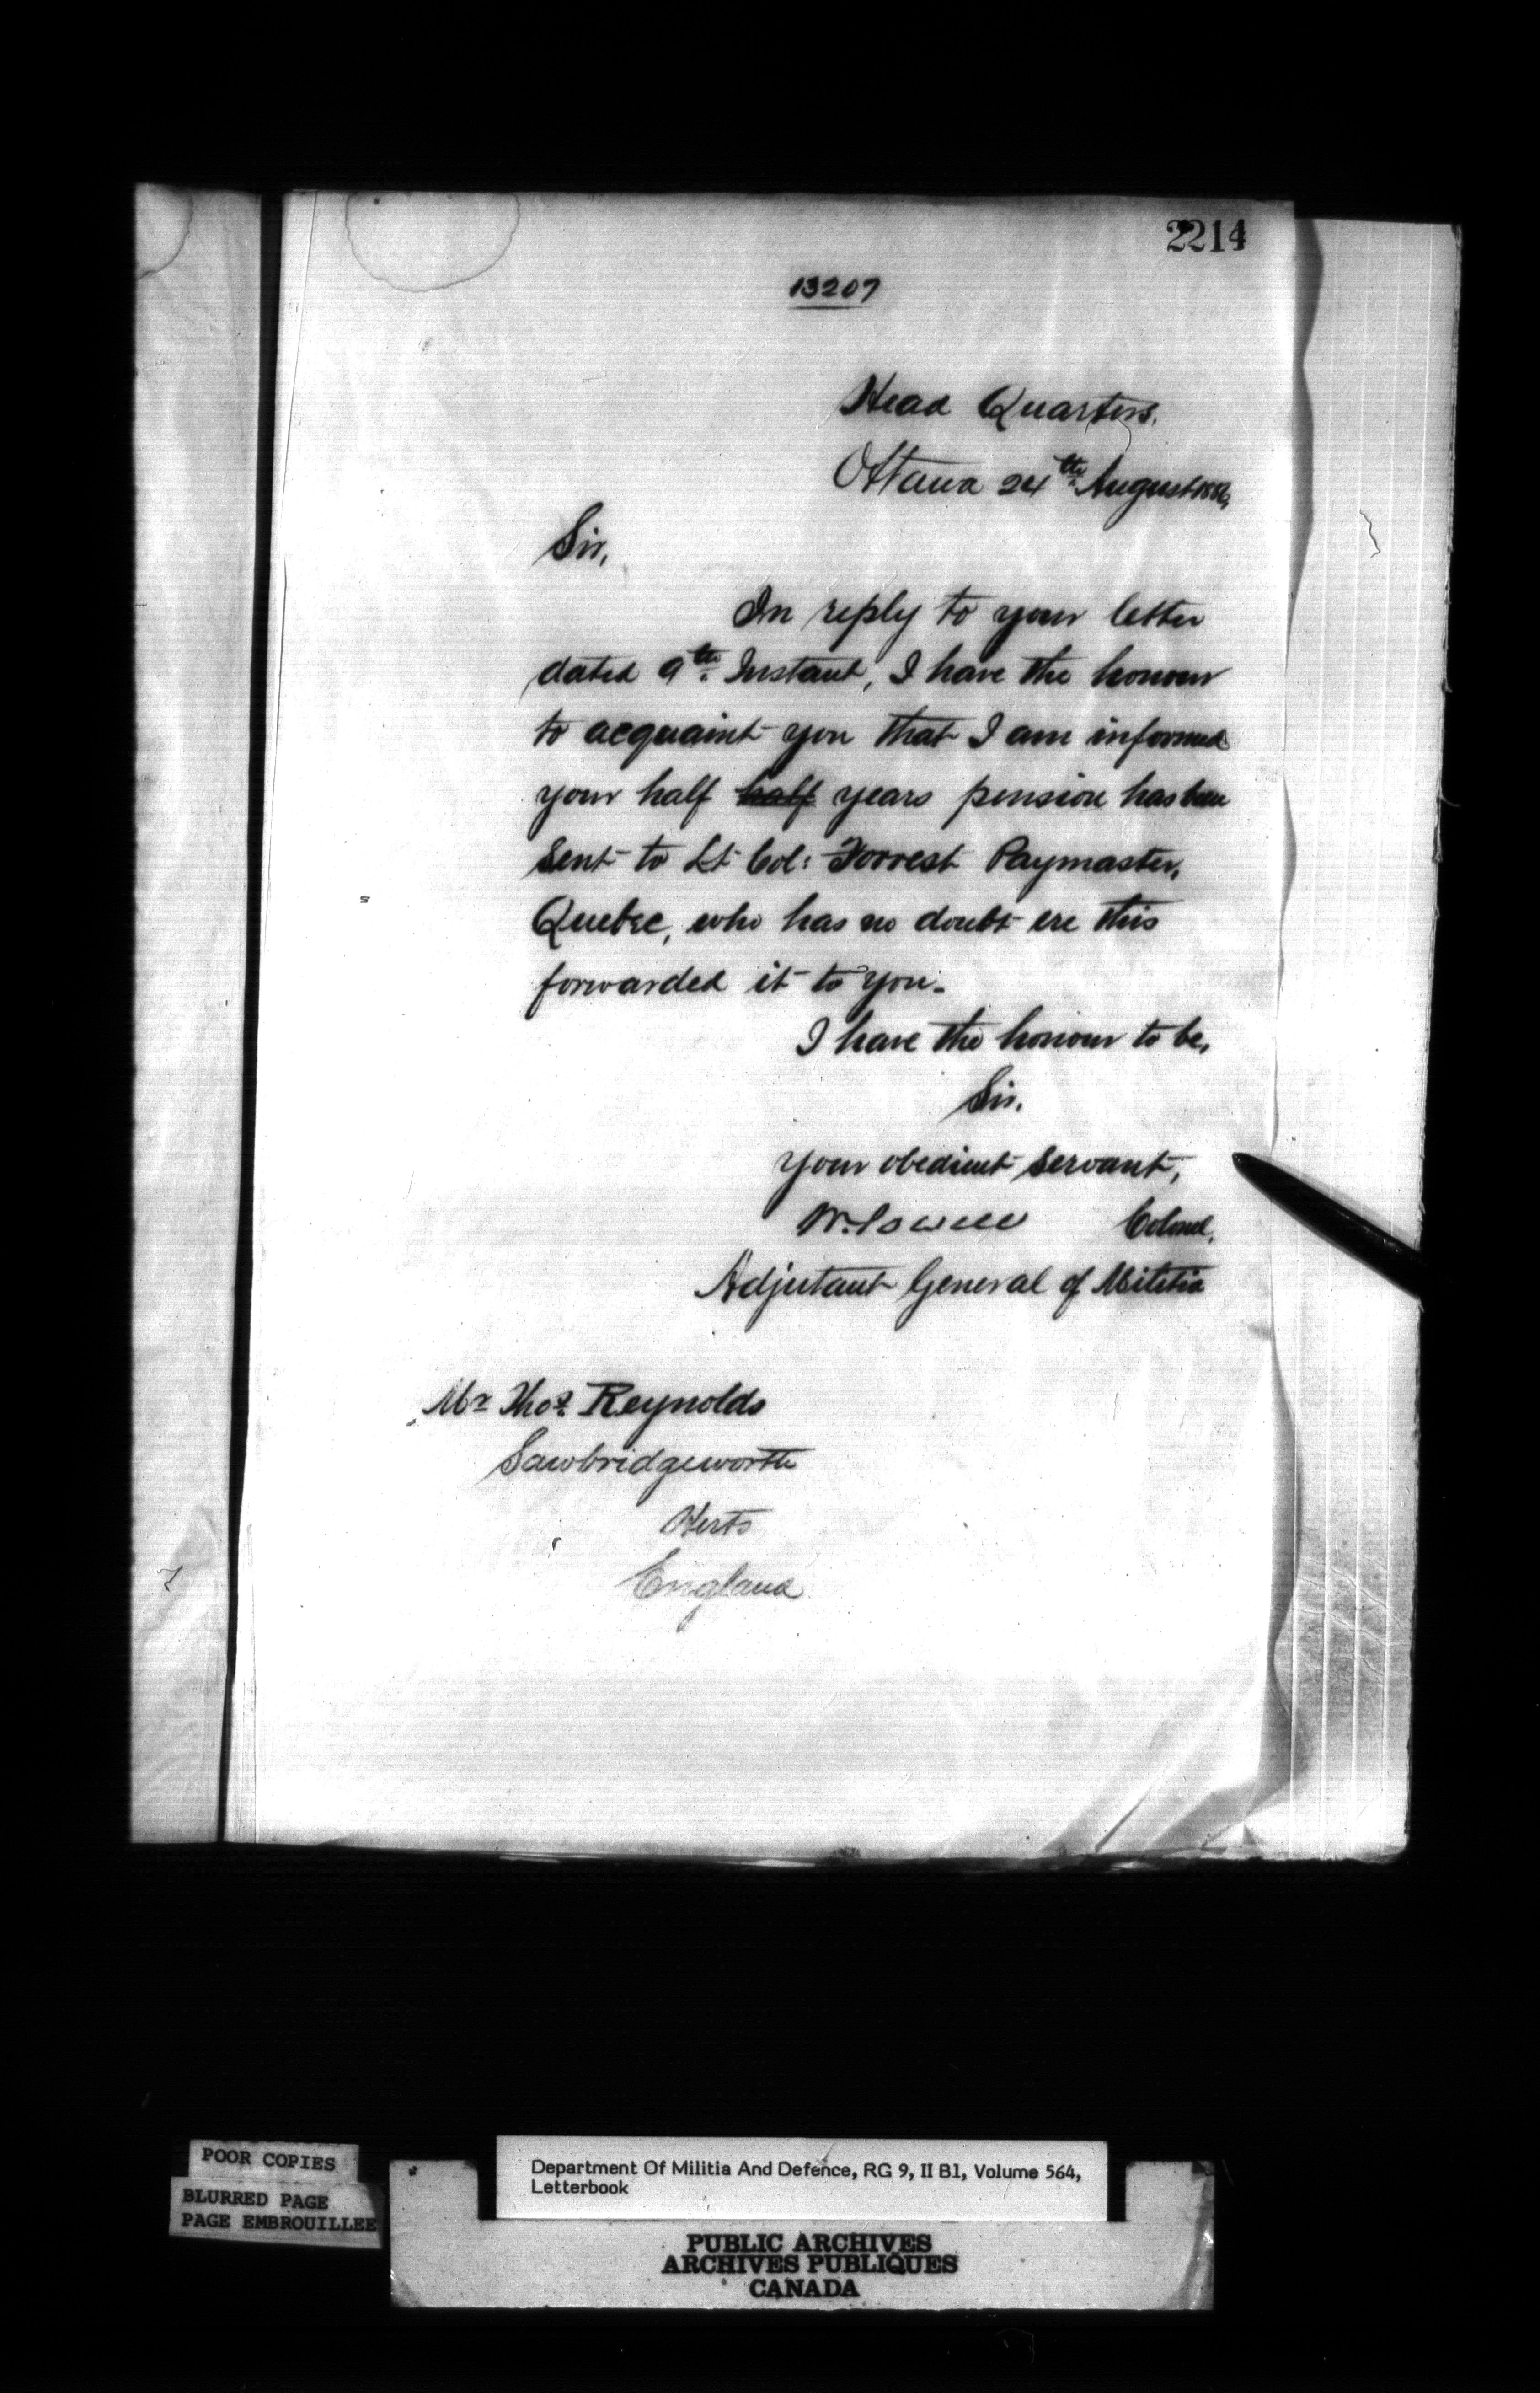 2214
13207
Head Quarters,
Ottawa 24th August 1886,
Sir,
In reply to your letter
dated 9th Instant, I have the honour
to acquaint you that I am informed
your half half years pension has been
sent to Lt Col: Forrest Paymaster,
Quebec, who has no doubt ere this
forwarded it to you.
I have the honour to be,
Sir,
your obedient servant,
W. Powell Colonel,
Adjutant General of Militia
Mr Thos. Reynolds
Sawbridgeworth
Herts
England
POOR COPIES
BLURRED PAGE
PAGE EMBROUILLEE
Department Of Militia And Defence, RG 9, II B1, Volume 564,
Letterbook
PUBLIC ARCHIVES
ARCHIVES PUBLIQUES
CANADA